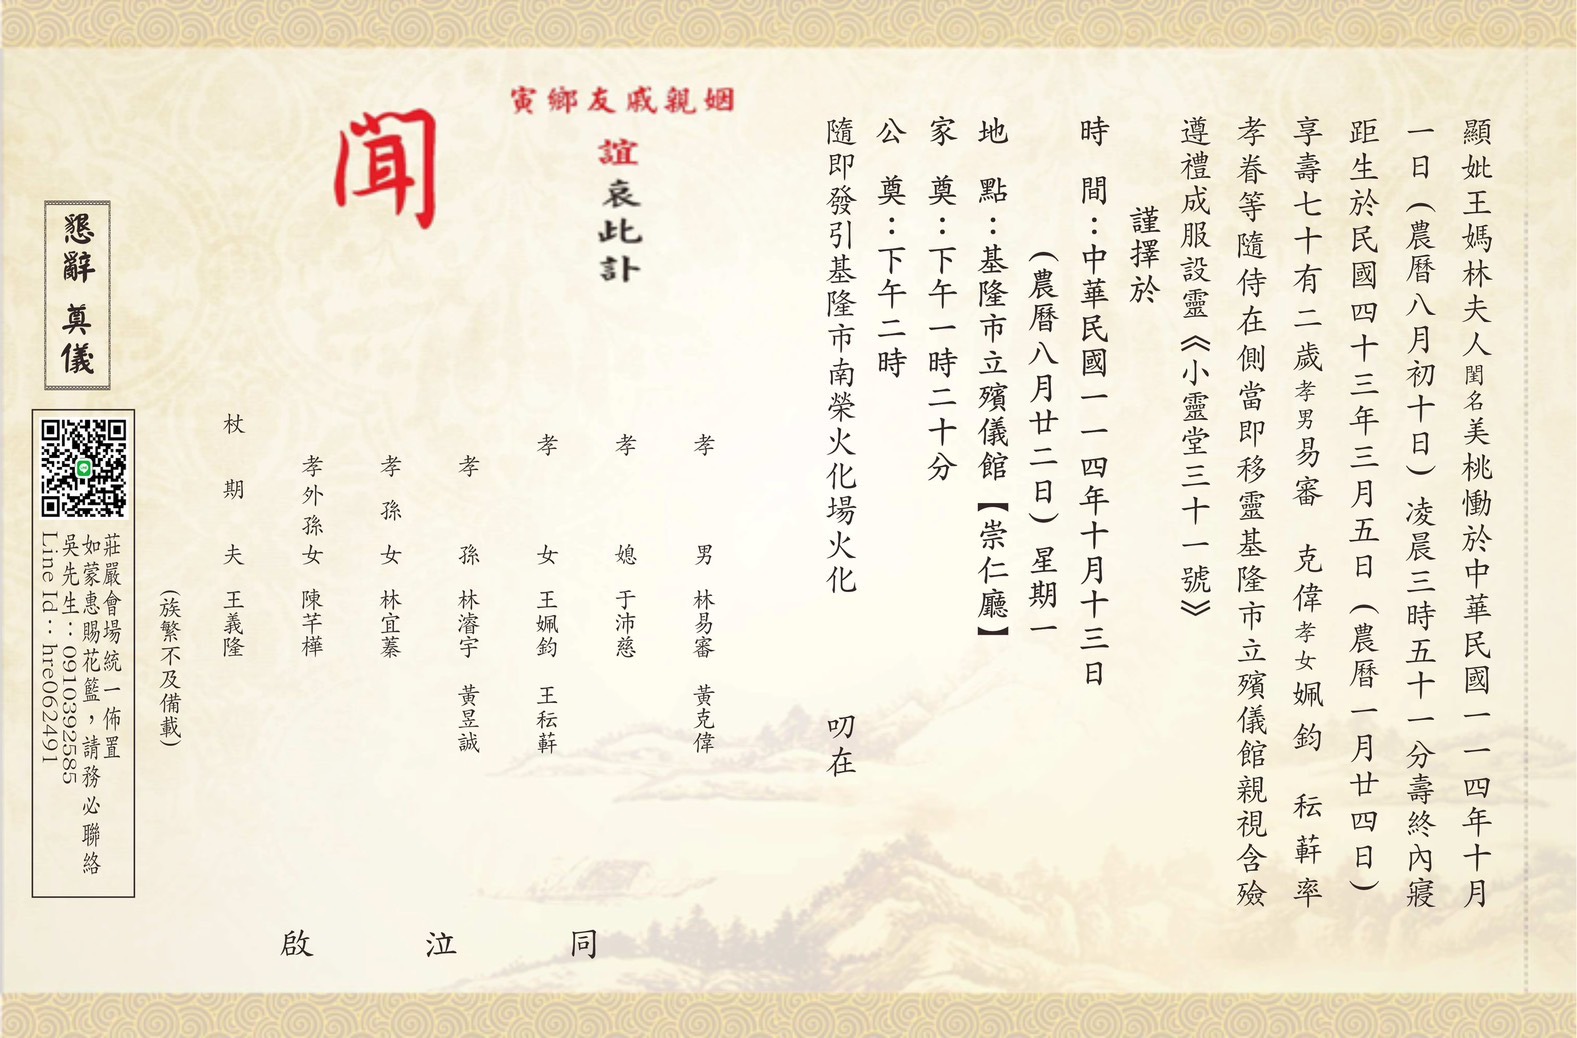 顯妣王媽林夫人閨名美桃慟於中華民國一一四年十月
一日(農曆八月初十日)凌晨三時五十一分壽終內寢
距生於民國四十三年三月五日(農曆一月廿四日)
享壽七十有二歲孝男易審 克偉孝女姵鈞 秐蓒率
孝眷等隨侍在側當即移靈基隆市立殯儀館親視含殮
遵禮成服設靈《小靈堂三十一號》
謹擇於
時 間:中華民國一一四年十月十三日
(農曆八月廿二日)星期一
地 點:基隆市立殯儀館【崇仁廳】
家 奠:下午一時二十分
公 奠:下午二時
隨即發引基隆市南榮火化場火化 叨在
寅鄉友戚親姻
誼哀此訃
聞
孝 男 林易審 黃克偉
孝 媳 于沛慈
孝 女 王姵鈞 王秐蓒
孝 孫 林濬宇 黃昱誠
孝孫女 林宜蓁
孝外孫女 陳芊樺
杖期夫 王義隆
(族繁不及備載)
同泣啟
懇辭 奠儀
莊嚴會場統一佈置
如蒙惠賜花籃,請務必聯絡
吳先生:0910392585
Line Id:hre062491